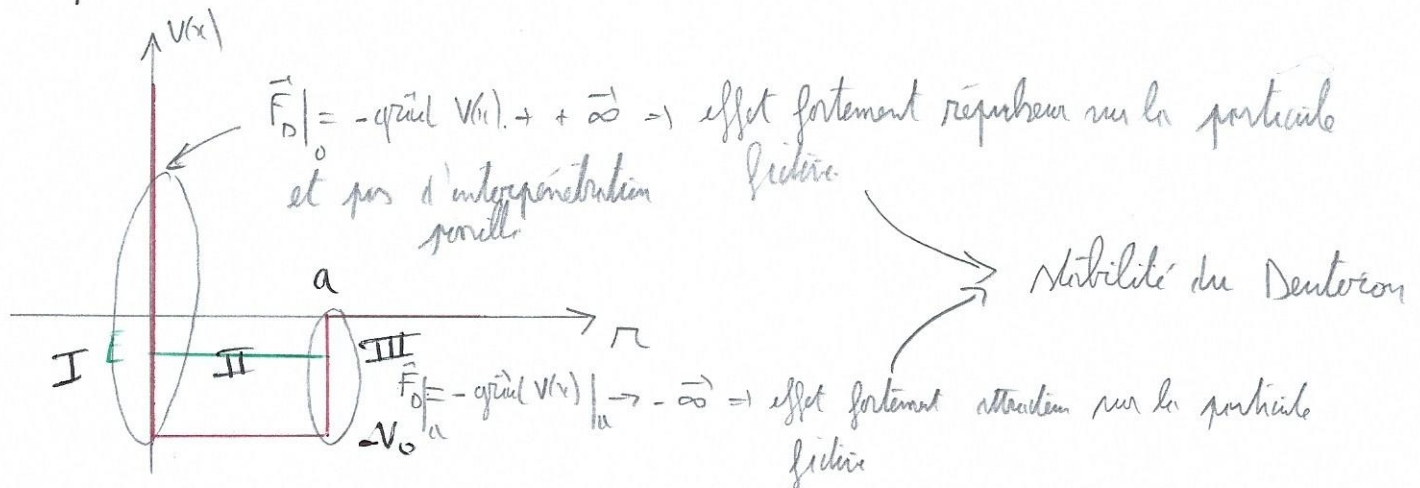 V(x)
F_D|_0 = -grad V(x) → + ∞ ⇒ effet fortement répulseur sur la particule
fictive
et pas d'interpénétration
possible
a
Stabilité du Deuteron
r
I E II III
F_D|_a = -grad V(x)|_a → - ∞ ⇒ effet fortement attracteur sur la particule
fictive
-V₀